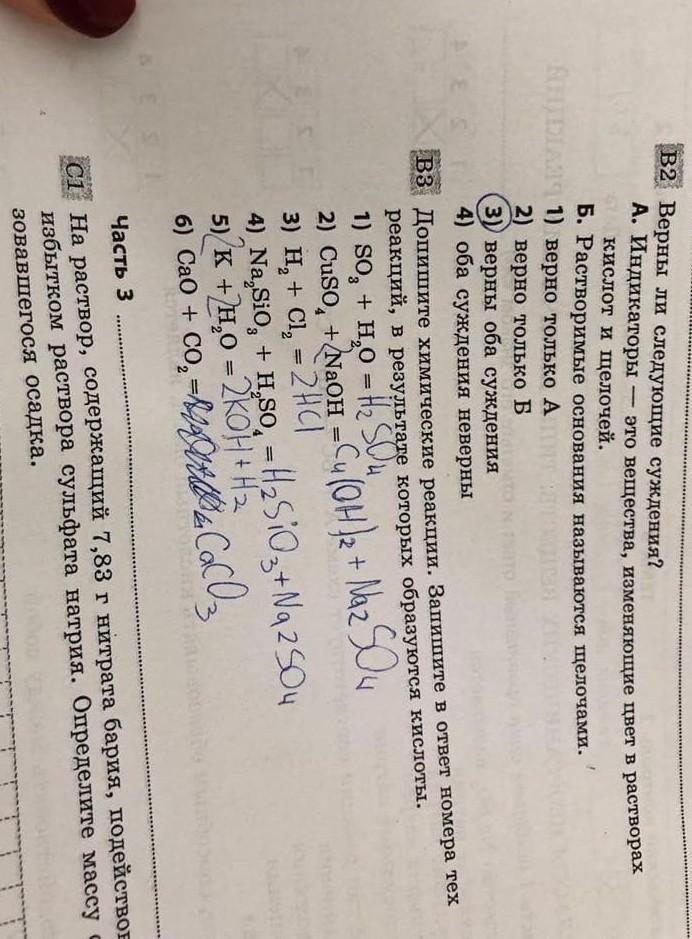 В2 Верны ли следующие суждения?
А. Индикаторы — это вещества, изменяющие цвет в растворах
кислот и щелочей.
Б. Растворимые основания называются щелочами.
1) верно только А
2) верно только Б
3) верны оба суждения
4) оба суждения неверны
В3 Допишите химические реакции. Запишите в ответ номера тех
реакций, в результате которых образуются кислоты.
1) SO3 + H2O = H2SO4
2) CuSO4 + 2NaOH = Cu(OH)2 + Na2SO4
3) H2 + Cl2 = 2HCl
4) Na2SiO3 + H2SO4 = H2SiO3 + Na2SO4
5) 2K + 2H2O = 2KOH + H2
6) CaO + CO2 = CaCO3
Часть 3
С1 На раствор, содержащий 7,83 г нитрата бария, подействов
избытком раствора сульфата натрия. Определите массу
зовавшегося осадка.